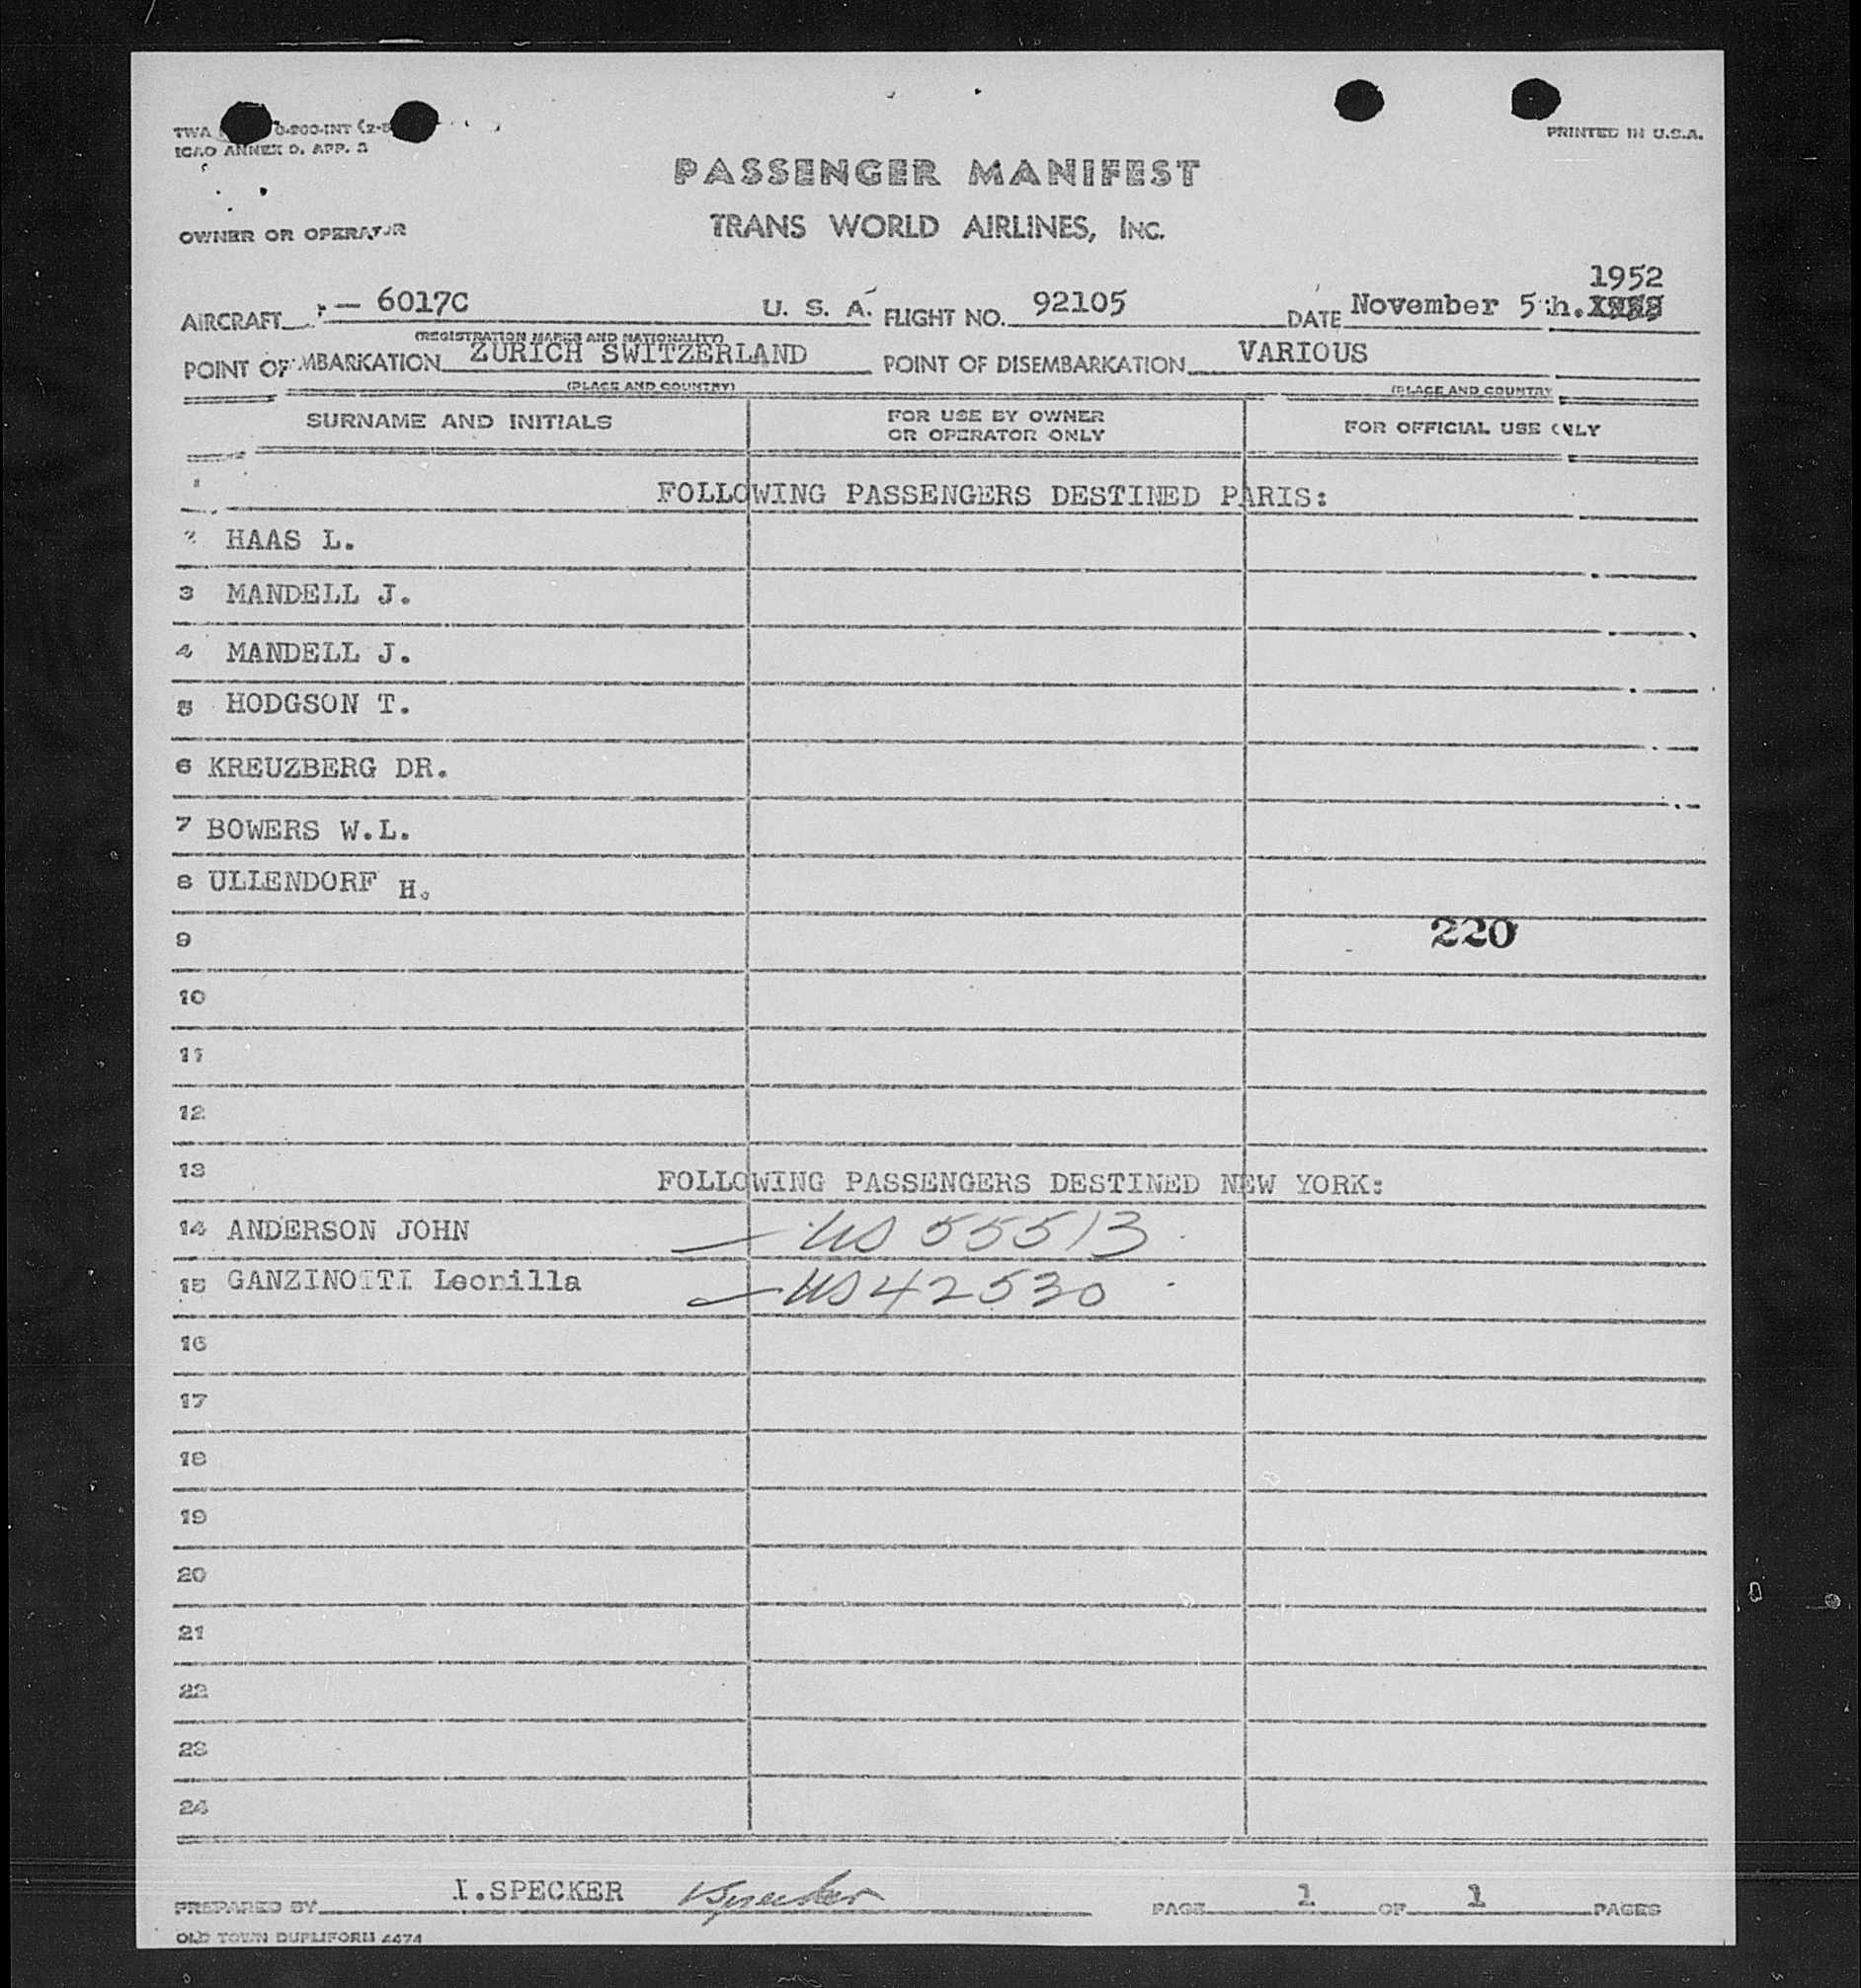 TWA 0-200-INT (2-5
ICAO ANNEX 9. APP. 3
PRINTED IN U.S.A.
PASSENGER MANIFEST
OWNER OR OPERATOR
TRANS WORLD AIRLINES, INC.
1952
AIRCRAFT — 6017C U. S. A. FLIGHT NO. 92105 DATE November 5th.
(REGISTRATION MARKS AND NATIONALITY)
POINT OF EMBARKATION ZURICH SWITZERLAND POINT OF DISEMBARKATION VARIOUS
(PLACE AND COUNTRY) (PLACE AND COUNTRY
SURNAME AND INITIALS
FOR USE BY OWNER
OR OPERATOR ONLY
FOR OFFICIAL USE ONLY
1 FOLLOWING PASSENGERS DESTINED PARIS:
2 HAAS L.
3 MANDELL J.
4 MANDELL J.
5 HODGSON T.
6 KREUZBERG DR.
7 BOWERS W.L.
8 ULLENDORF H.
9 220
10
11
12
13 FOLLOWING PASSENGERS DESTINED NEW YORK:
14 ANDERSON JOHN — US 55513
15 GANZINOTTI Leonilla — US 42530
16
17
18
19
20
21
22
23
24
PREPARED BY I.SPECKER ISpecker PAGE 1 OF 1 PAGES
OLD TOWN DUPLIFORM 4474